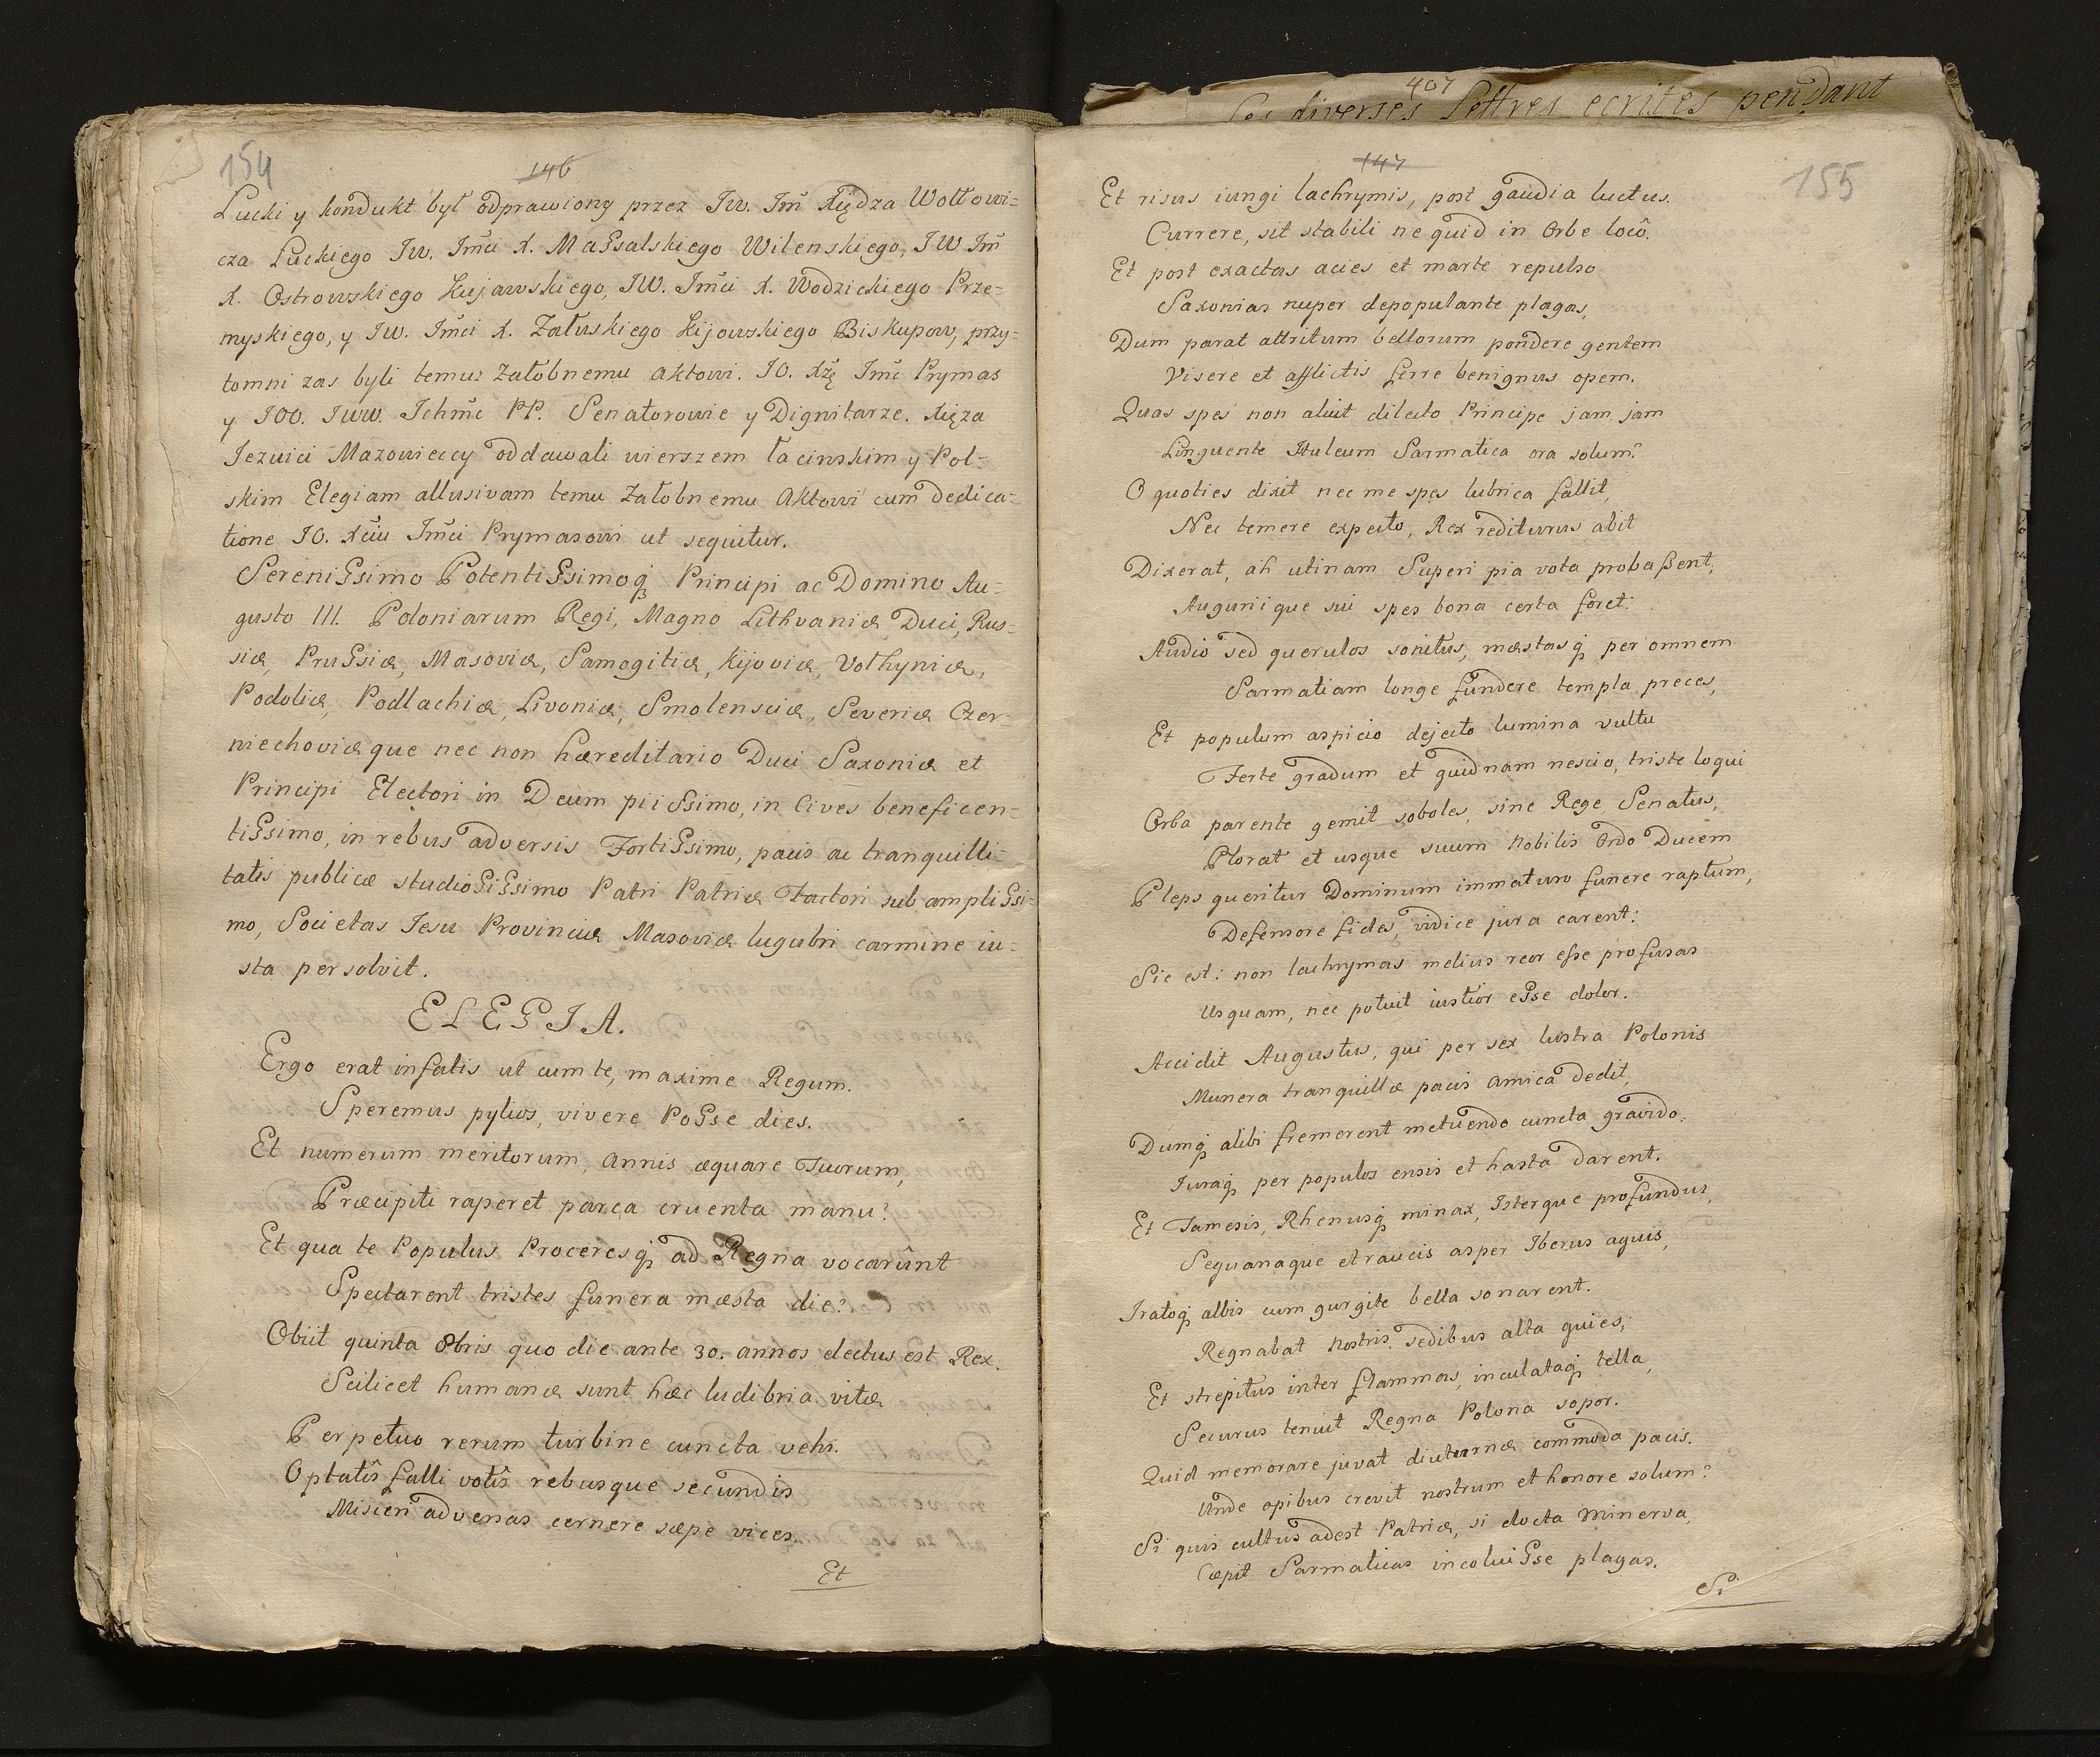 154
146
Lucki y kondukt był odprawiony przez Jw. Jm̃ Xiędza Wołłowi-
cza Łuckiego Jw. Jm̃ci X. Massalskiego Wilenskiego, JW Jm̃
X. Ostrowskiego Kujawskiego, JW. Jm̃ci X. Wodzickiego Prze-
myskiego, y Jw. Jm̃ci X. Załuskiego Kijowskiego Biskupow, przy-
tomni zas byli temuz Załobnemu aktowi. JO. Xżę Jm̃c Prymas
y JOO. Jww. Ichm̃c PP. Senatorowie y Dignitarze. Xięza
Jezuici Mazowieccy oddawali wierszem łacinskim y Pol-
skim Elegiam allusivam temu Załobnemu Aktowi cum dedica-
tione JO. Xciu Jm̃ci Prymasowi ut sequitur.
Serenissimo Potentissimoq3 Principi ac Domino Au-
gusto III. Poloniarum Regi, Magno Lithvaniæ Duci, Rus-
siæ, Prussiæ, Masoviæ, Samogitiæ, Kijoviæ, Volhyniæ,
Podoliæ, Podlachiæ, Livoniæ, Smolensciæ, Severiæ Czer-
niechoviæque nec non hæreditario Duci Saxoniæ et
Principi Electori in Deum piissimo, in Cives beneficen-
tissimo, in rebus adversis Fortissimo, pacis ac tranquilli-
tatis publicæ studiosissimo Patri Patriæ Factori sub amplissi-
mo, Societas Jesu Provinciæ Masoviæ lugubri carmine iu-
sta persolvit.
ELEGIA.
Ergo erat infatis ut cum te, maxime Regum.
Speremus pylios, vivere Posse dies.
Et numerum meritorum, annis æquare Tuorum,
Præcipiti raperet parca cruenta manu?
Et qua te Populus Proceresq3 ad Regna vocarûnt
Spectarent tristes funera mæsta die?
Obiit quinta 8bris quo die ante 30. annos electus est Rex.
Scilicet humanæ sunt hæc ludibria vitæ
Perpetuo rerum turbine cuncta vehi.
Optatîs falli votîs rebusque secundis
Misceri adversas cernere sæpe vices.
Et
407
Les diverses Lettres ecrites pendant
147
155
Et risus iungi lachrymis, post gaudia luctus.
Currere, sit stabili ne quid in Orbe locô.
Et post exactas acies et marte repulso
Saxonias nuper depopulante plagas,
Dum parat attritum bellorum pondere gentem
Visere et afflictis ferre benignus opem.
Quas spes non aluit dilecto Principe jam jam
Linquente Ituleum Sarmatica ora solum?
O quoties dixit nec me spes lubrica fallit,
Nec temere expecto, Rex rediturus abit
Dixerat, ah utinam Superi pia vota probassent,
Auguriique sui spes bona certa foret:
Audio sed querulos sonitus, mæstasq3 per omnem
Sarmatiam longe fundere templa preces,
Et populum aspicio dejecto lumina vultu
Ferte gradum et quidnam nescio, triste loqui
Orba parente gemit soboles, sine Rege Senatus,
Plorat et usque suum nobilis Ordo Ducem
Pleps queritur Dominum immaturo funere raptum,
Defensore fides, vidice jura carent:
Sic est: non lachrymas melius reor esse profusas
Usquam, nec potuit iustior esse dolor.
Accidit Augustus, qui per sex lustra Polonis
Munera tranquillæ pacis amica dedit,
Dumq3 alibi fremerent metuendo cuncta gravido.
Juraq3 per populos ensis et hasta darent.
Et Tamesis, Rhenusq3 minax, Isterque profundus,
Sequanaque et raucis asper Iberus aquis,
Iratoq3 albis cum gurgite bella sonarent.
Regnabat nostris sedibus alta quies,
Et strepitus inter flammas, inculataq3 tella,
Securus tenuit Regna Polona sopor.
Quid memorare juvat diuturnæ commoda pacis.
Unde opibus crevit nostrum et honore solum?
Si quis cultus adest Patriæ, si docta Minerva,
Cæpit Sarmaticas incoluisse plagas.
Si